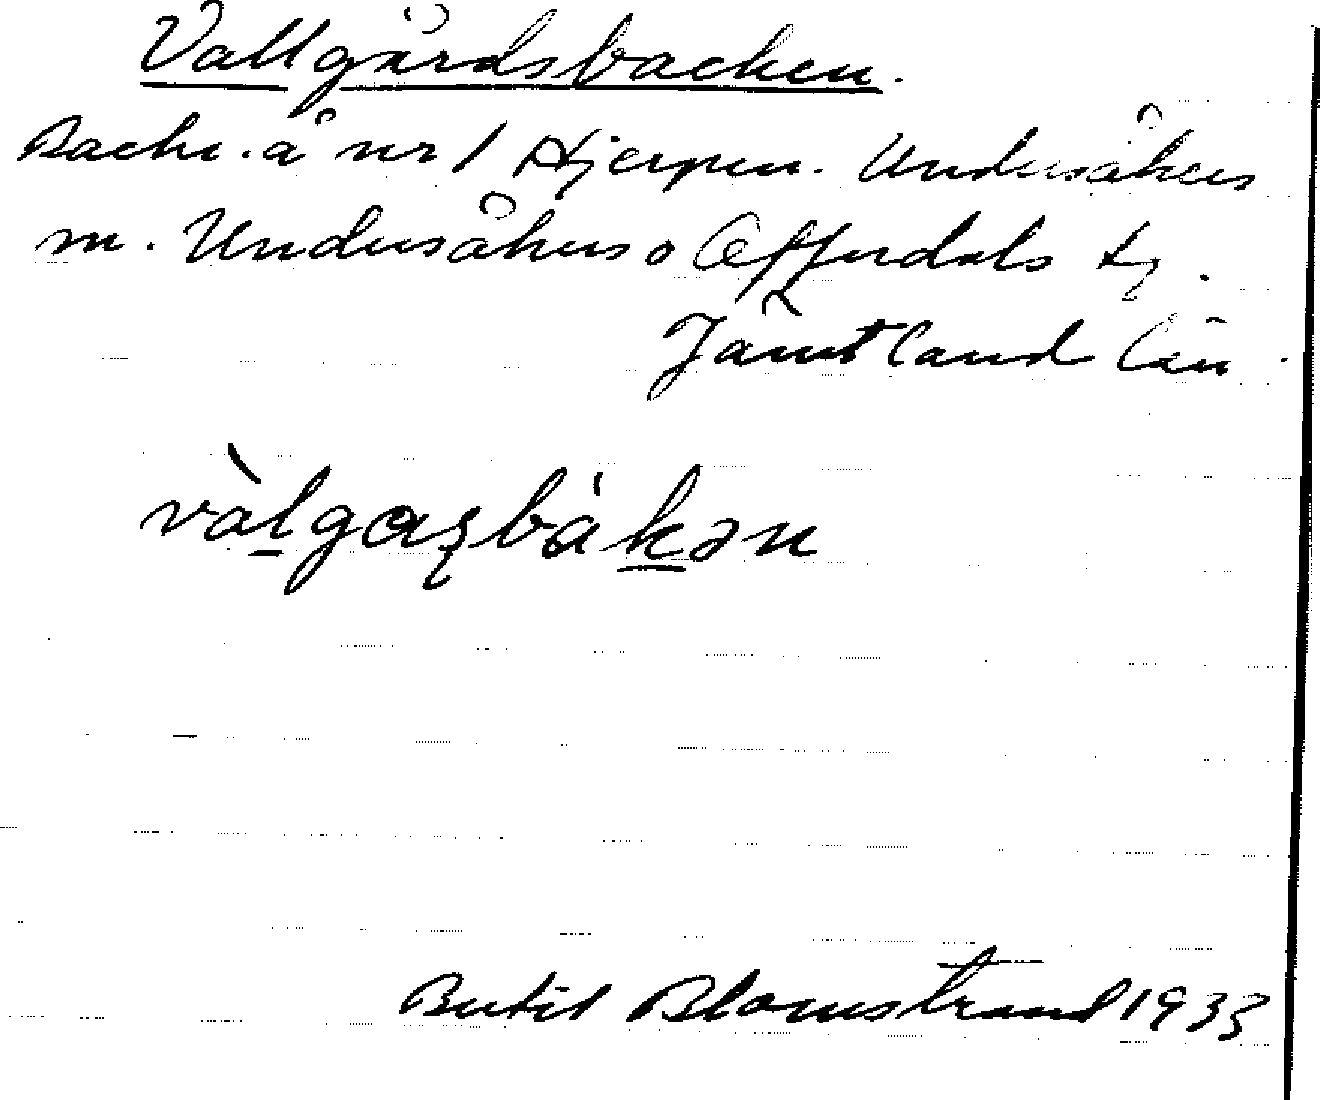 Vallgårdsbacken.
Backe. å nr 1 Hjerpen. Undersåkers
m. Undersåkers o Offerdals tg.
Jämtland län.
vàlgaʂbákən
Bertil Blomstrand 1933